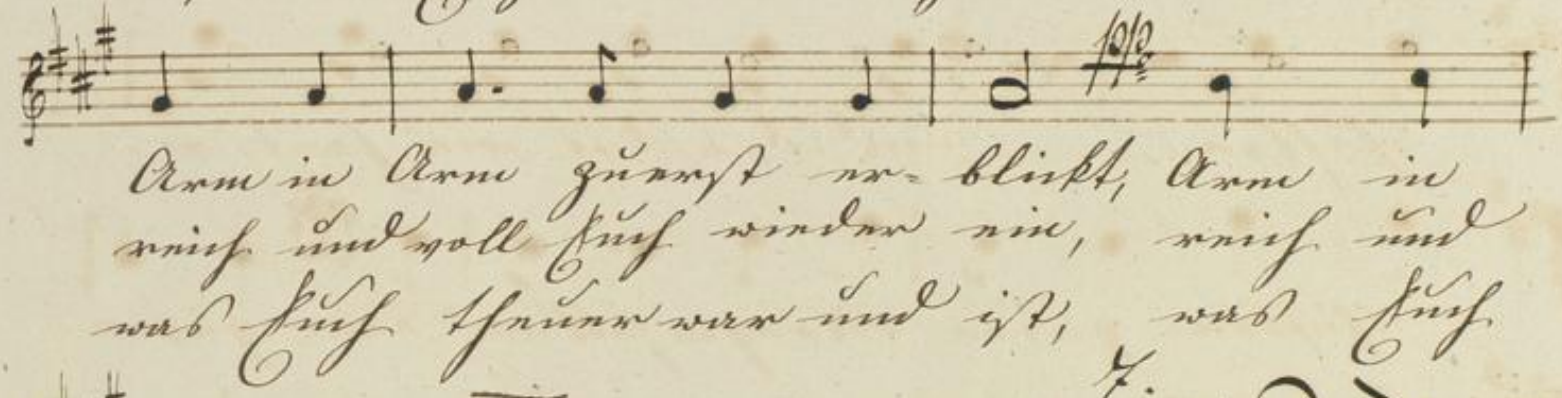 Arm in Arm zuerst er- blickt, Arm in
reich und voll Euch wieder ein, reich und
was Euch theuer war und ist, was Euch
7.